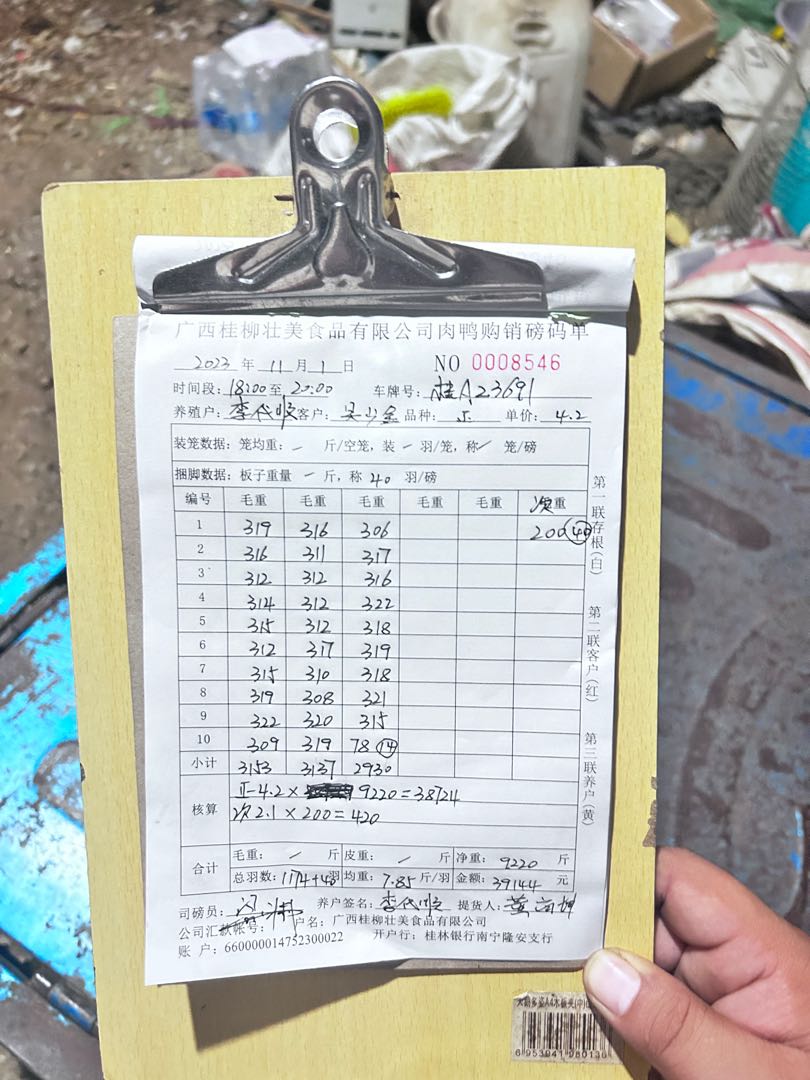 广西桂柳壮美食品有限公司肉鸭购销磅码单
2023 年 11 月 1 日 NO 0008546
时间段: 18:00 至 20:00 车牌号: 桂A23691
养殖户: 李代 客户: 吴少金 品种: 正 单价: 4.2
装笼数据: 笼均重: - 斤/空笼, 装 - 羽/笼, 称 / 笼/磅
捆脚数据: 板子重量 - 斤, 称 40 羽/磅
编号 毛重 毛重 毛重 毛重 毛重 次重
1 319 316 306 200 (40)
2 316 311 317
3 312 312 316
4 314 312 322
5 315 312 318
6 312 317 319
7 315 310 318
8 319 308 321
9 322 320 315
10 309 319 78 (14)
小计 3153 3137 2930
核算 正4.2×9220=38724
次2.1×200=420
合计 毛重: / 斤 皮重: / 斤 净重: 9220 斤
总羽数: 1174+40 羽 均重: 7.85 斤/羽 金额: 39144 元
司磅员: 养户签名: 李代 提货人: 黄
公司汇款帐号: 户名: 广西桂柳壮美食品有限公司
账 户: 660000014752300022 开户行: 桂林银行南宁隆安支行
第一联存根(白)
第二联客户(红)
第三联养户(黄)
6 953941 980136